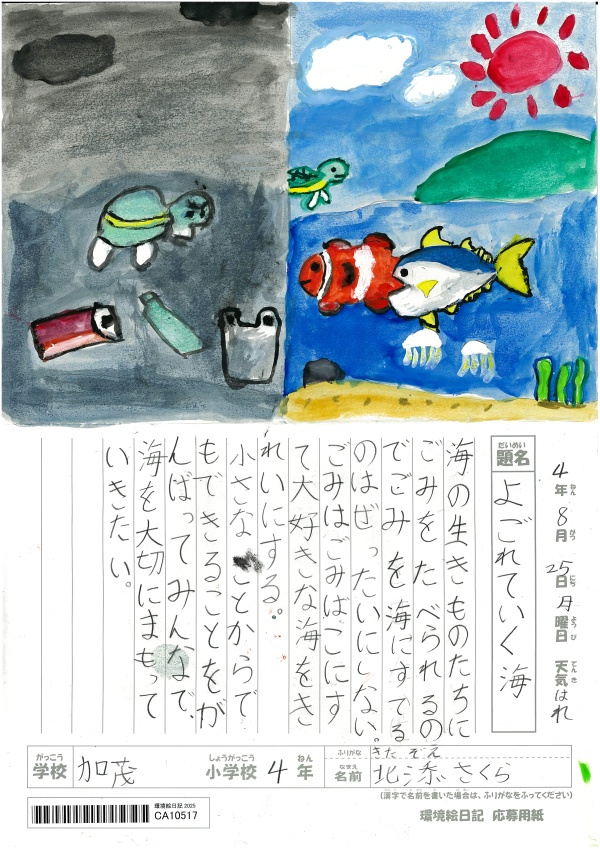 4年8月25日月曜日 天気はれ
ねん がつ にち ようび てんき
だいめい
題名
よごれていく海
海の生きものたちに
ごみをたべられるの
でごみを海にすてる
のはぜったいにしない。
ごみはごみばこにす
て大好きな海をき
れいにする。
小さなことからで
もできることをが
んばってみんなで、
海を大切にまもって
いきたい。
がっこう
学校
加茂
しょうがっこう
小学校
4
ねん
年
ふりがな
きたぞえ
なまえ
名前
北添さくら
(漢字で名前を書いた場合は、ふりがなをふってください)
環境絵日記 2025
CA10517
環境絵日記 応募用紙